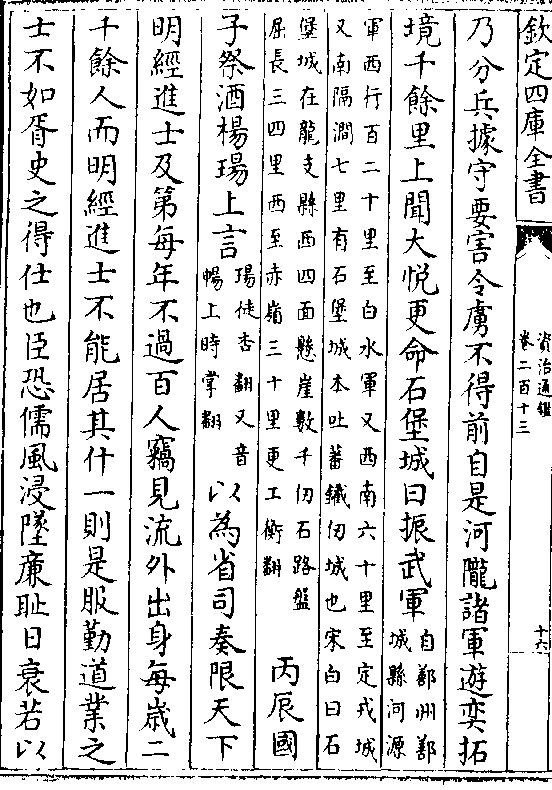 欽定四庫全書
資治通鑑
卷二百十三
十六
乃分兵據守要害令虜不得前自是河隴諸軍遊奕拓
境千餘里上聞大悅更命石堡城曰振武軍自鄯州鄯
城縣河源
軍西行百二十里至白水軍又西南六十里至定戎城
又南隔澗七里有石堡城本吐蕃鐵仞城也宋白曰石
堡城在龍支縣西四面懸崖數千仞石路盤
屈長三四里西至赤嶺三十里更工衡翻
丙辰國
子祭酒楊瑒上言
瑒徒杏翻又音
暢上時掌翻
以為省司奏限天下
明經進士及第每年不過百人竊見流外出身每歲二
千餘人而明經進士不能居其什一則是服勤道業之
士不如胥史之得仕也臣恐儒風浸墜廉恥日衰若以